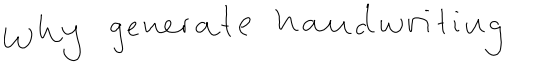 why generate handwriting